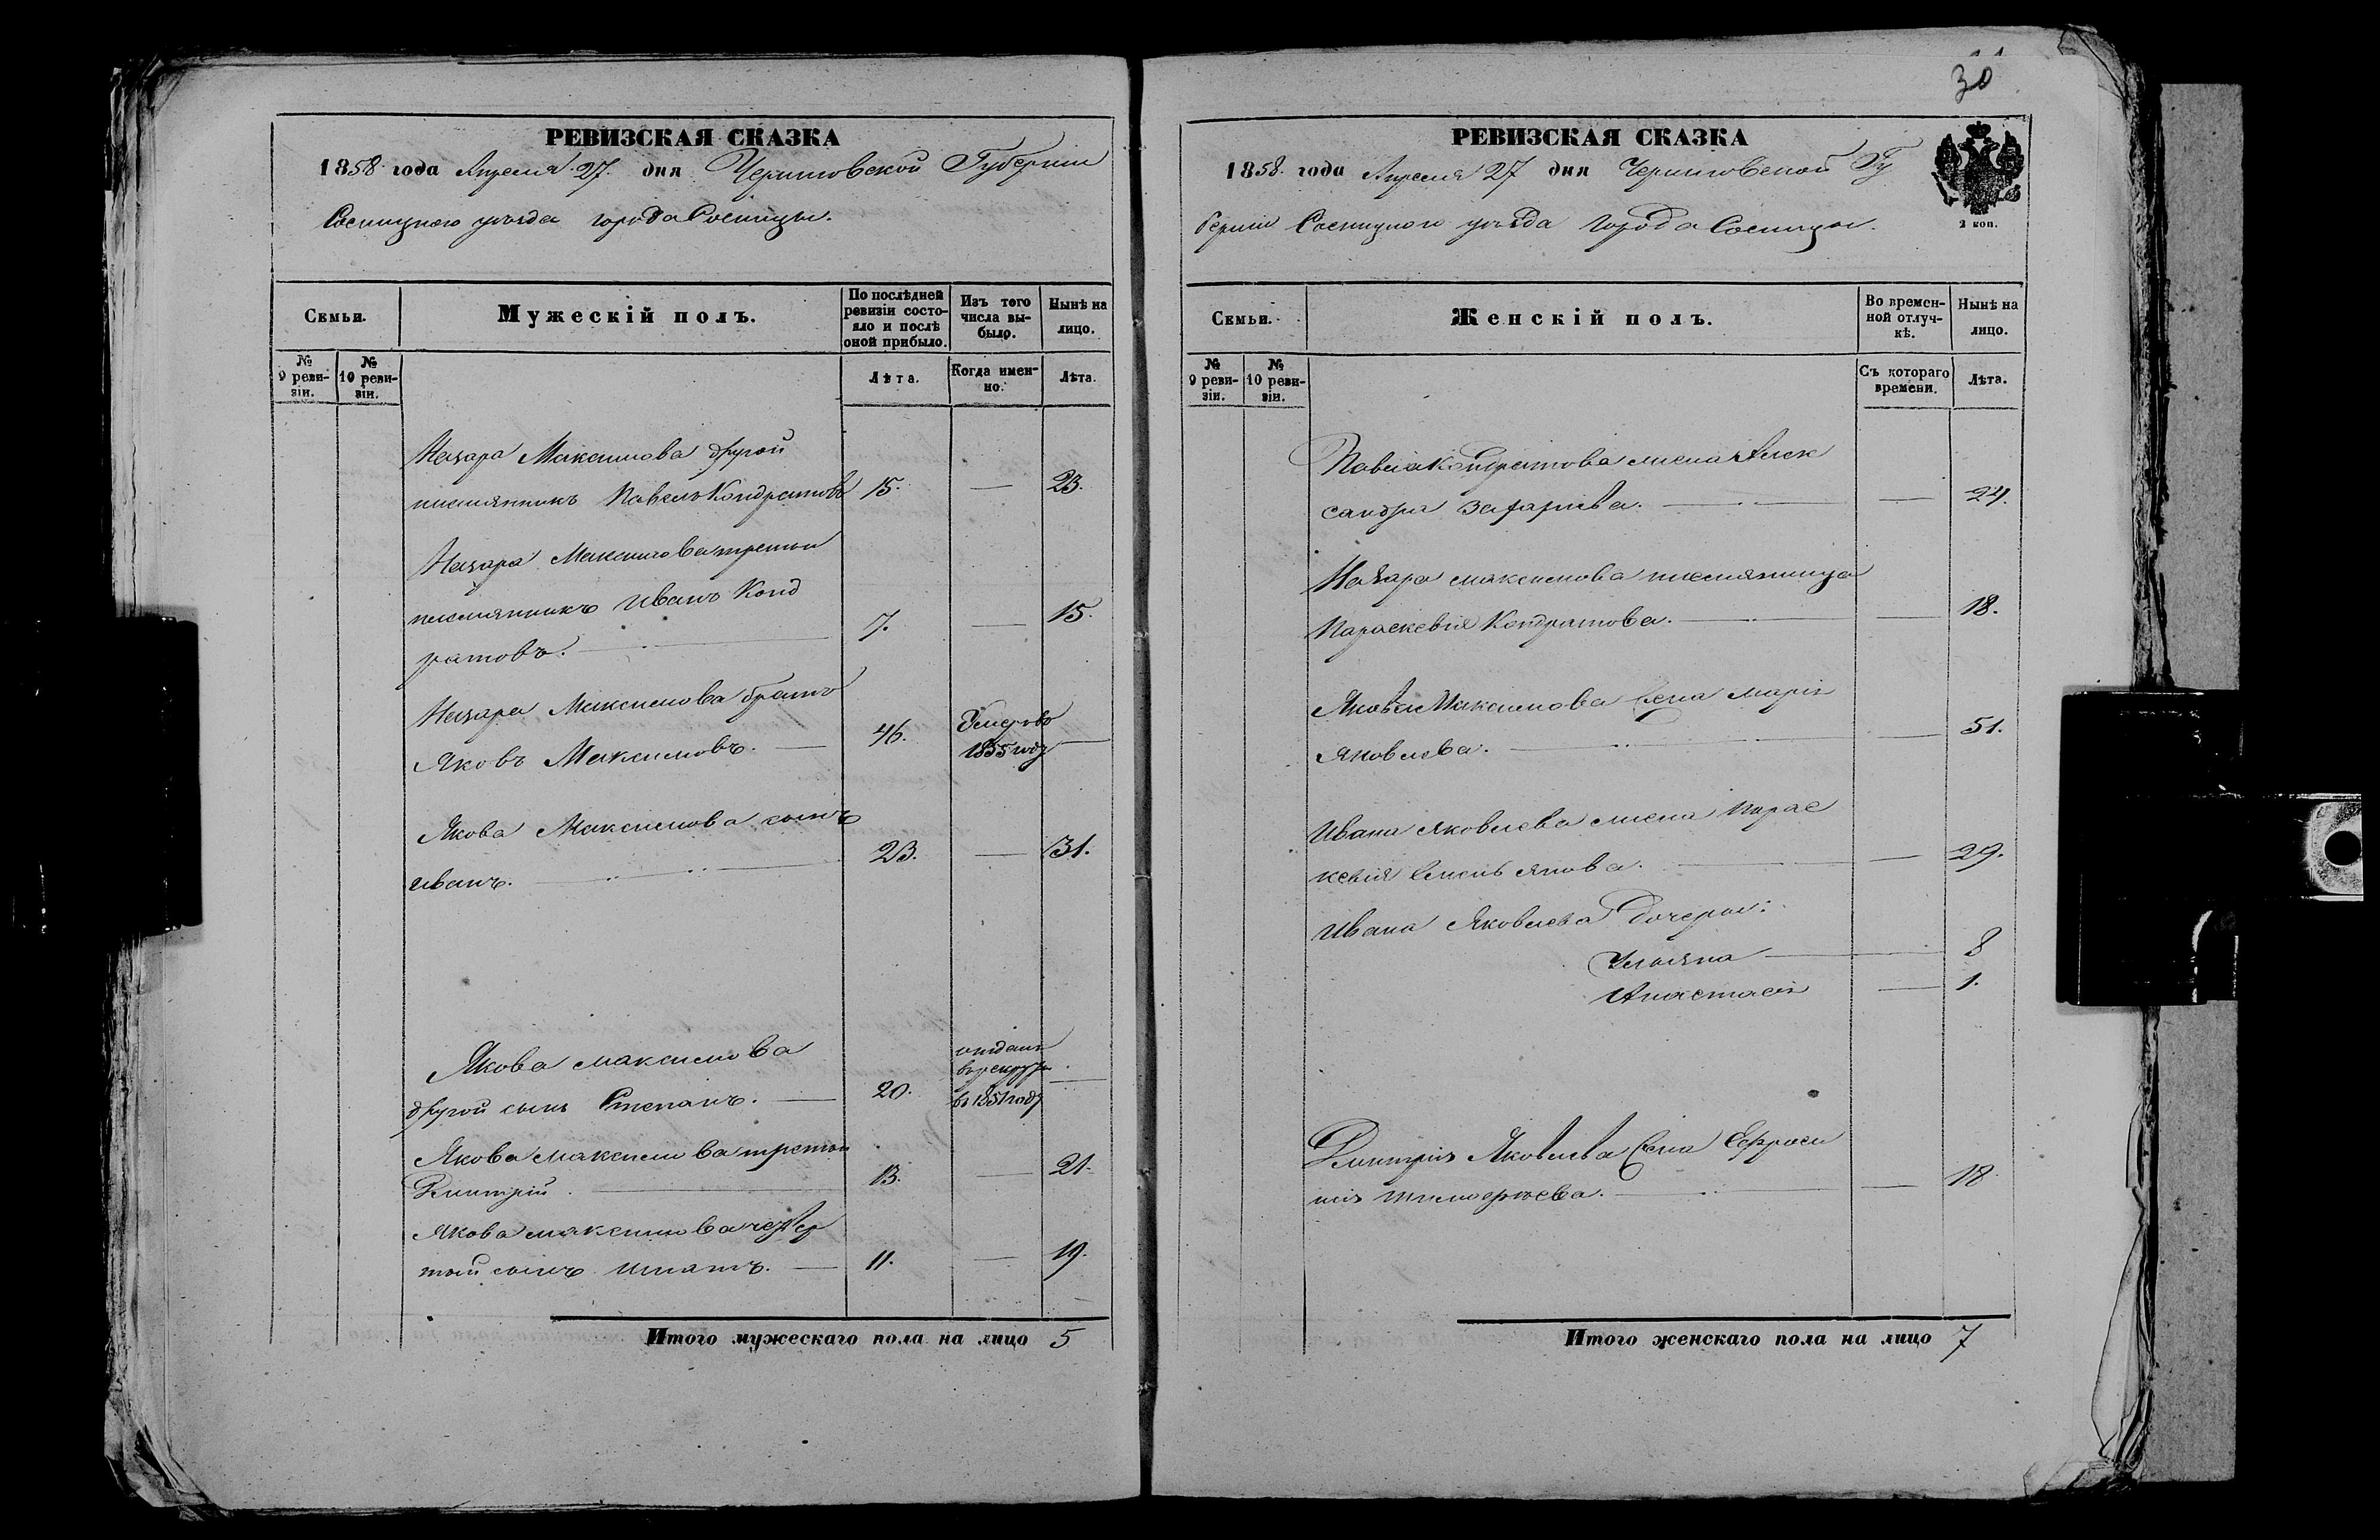 РЕВИЗСКАЯ СКАЗКА
1858 года Апреля 27. дня Черниговской Губернии
Сосницкого уезда города Сосницы.
Семьи.
Мужескій полъ.
По послѣдней ревизіи состояло и послѣ оной прибыло.
Изъ того числа выбыло.
Нынѣ на лицо.
№ 9 ревизіи.
№ 10 ревизіи.
Лѣта.
Когда именно.
Лѣта.
Назара Максимова другой
племянникъ Павелъ Кондратовъ 15. — 23.
Назара Максимова третій
племянникъ Иванъ Конд
ратовъ. 7. — 15.
Назара Максимова братъ
Яковъ Максимовъ. — 46. Умеръ въ 1855 году —
Якова Максимова сынъ
Иванъ. 23. — 31.
Якова Максимова
другой сынъ Степанъ. — 20. отданъ в рекруты в 1851 году —
Якова Максимова третій
Дмитрій. 13. — 21.
Якова Максимова четвер
тый сынъ Игнатъ. — 11. — 19.
Итого мужескаго пола на лицо 5
30
РЕВИЗСКАЯ СКАЗКА
1858. года Апреля 27 дня Черниговской Гу
берніи Сосницкого уезда города Сосницы.
2 коп.
Семьи.
Женскій полъ.
Во временной отлучкѣ.
Нынѣ на лицо.
№ 9 ревизіи.
№ 10 ревизіи.
Съ котораго времени.
Лѣта.
Павла Кондратова жена Алек
сандра Захарьева. — — 24.
Назара Максимова племянница
Параскевія Кондратова. — — 18.
Якова Максимова жена Марія
Яковлева. — — 51.
Ивана Яковлева жена Парас
кевія Емельянова. — — 29.
Ивана Яковлева дочери:
Ульяна — 8
Анастасія — 1.
Дмитрія Яковлева жена Ефроси
нія Тимофеева. — — 18
Итого женскаго пола на лицо 7